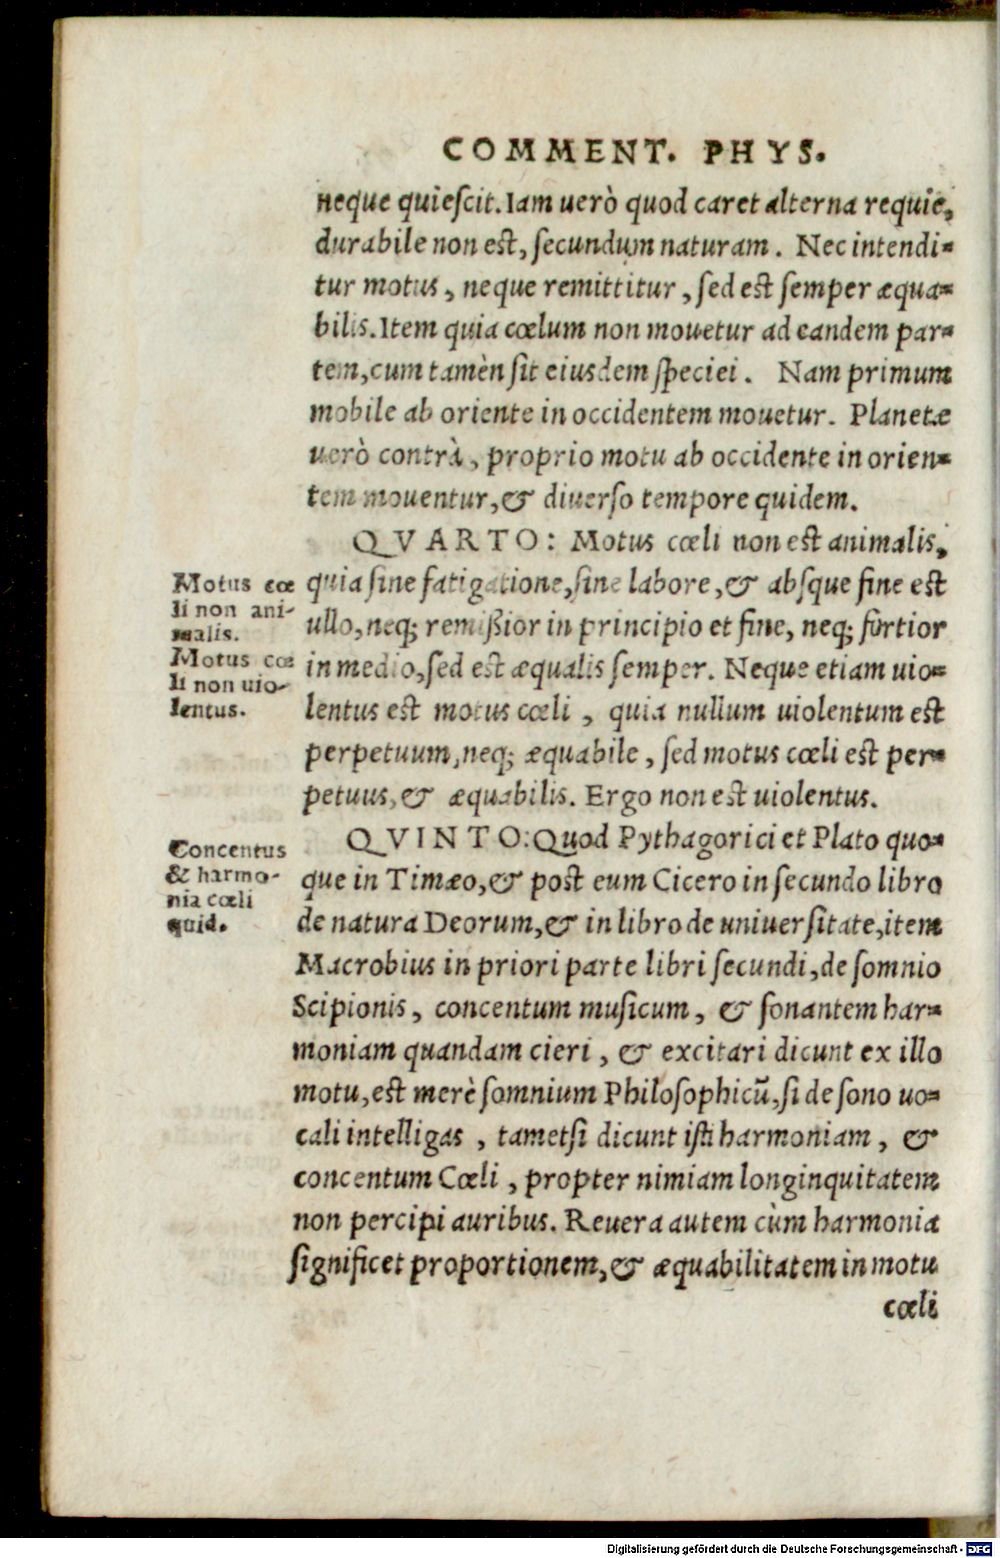 COMMENT. PHYS.
neque quieſcit. Iam uerò quod caret alterna requie,
durabile non eſt, ſecundum naturam. Nec intendi-
tur motus, neque remittitur, ſed eſt ſemper æqua-
bilis. Item quia cœlum non mouetur ad eandem par-
tem, cum tamèn ſit eiusdem ſpeciei. Nam primum
mobile ab oriente in occidentem mouetur. Planetæ
uerò contrà, proprio motu ab occidente in orien-
tem mouentur, & diuerſo tempore quidem.
QVARTO: Motus cœli non eſt animalis,
Motus cœ
li non ani-
malis.
quia ſine fatigatione, ſine labore, & abſque fine eſt
ullo, neq; remißior in principio et fine, neq; fortior
Motus cœ
li non uio-
lentus.
in medio, ſed eſt æqualis ſemper. Neque etiam uio-
lentus eſt motus cœli, quia nullum uiolentum eſt
perpetuum, neq; æquabile, ſed motus cœli eſt per-
petuus, & æquabilis. Ergo non eſt uiolentus.
QVINTO: Quod Pythagorici et Plato quo-
Concentus
& harmo-
nia cœli
quid.
que in Timæo, & poſt eum Cicero in ſecundo libro
de natura Deorum, & in libro de uniuerſitate, item
Macrobius in priori parte libri ſecundi, de ſomnio
Scipionis, concentum muſicum, & ſonantem har-
moniam quandam cieri, & excitari dicunt ex illo
motu, eſt merè ſomnium Philoſophicũ, ſi de ſono uo-
cali intelligas, tametſi dicunt iſti harmoniam, &
concentum Cœli, propter nimiam longinquitatem
non percipi auribus. Reuera autem cùm harmonia
ſignificet proportionem, & æquabilitatem in motu
cœli
Digitalisierung gefördert durch die Deutsche Forschungsgemeinschaft - DFG